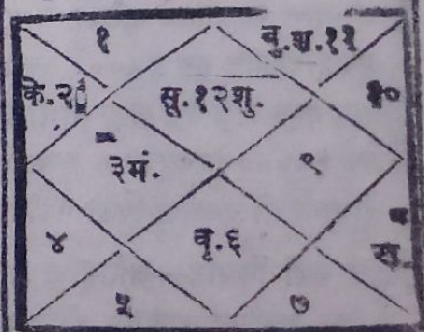 १ बु.श.११
के.२ सू.१२शु. १०
३मं. ९
४ वृ.६
५ ७